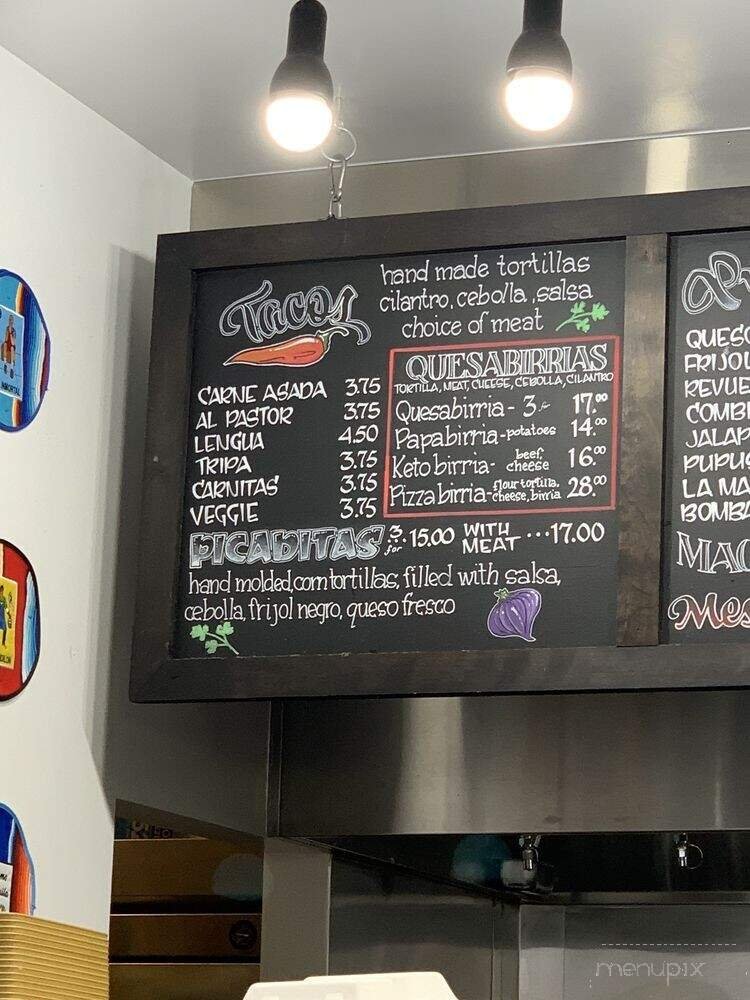 Tacos
hand made tortillas
cilantro, cebolla, salsa
choice of meat
CARNE ASADA 3.75
AL PASTOR 3.75
LENGUA 4.50
TRIPA 3.75
CARNITAS 3.75
VEGGIE 3.75
QUESABIRRIAS
TORTILLA, MEAT, CHEESE, CEBOLLA, CILANTRO
Quesabirria - 3 for 17.00
Papabirria - potatoes 14.00
Keto birria - beef, cheese 16.00
Pizza birria - flour tortilla, cheese, birria 28.00
PICADITAS 3 for 15.00 WITH MEAT ... 17.00
hand molded corn tortillas, filled with salsa,
cebolla, frijol negro, queso fresco
QUESO
FRIJOL
REVUE
COMBI
JALAP
PUPUS
LA MA
BOMBA
MAC
Mes
menupix